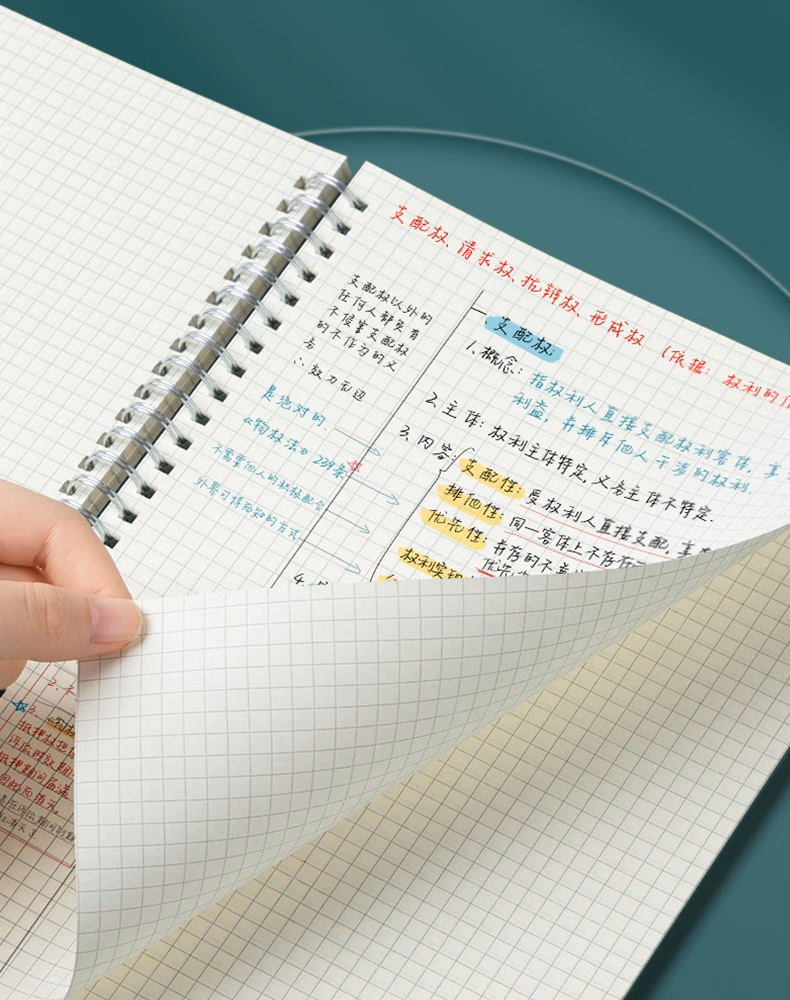 支配权、请求权、抗辩权、形成权 (依据: 权利的作
支配权以外的
任何人都负有
不侵害支配权
的不作为的义
务
∴ 效力无边
是绝对的.
《物权法》 239条
不需要他人的积极配合
外界可得而知的方式
一、支配权:
1. 概念: 指权利人直接支配权利客体, 享
利益, 并排斥他人干涉的权利.
2. 主体: 权利主体特定, 义务主体不特定.
3. 内容:
支配性: 受权利人直接支配, 享有
排他性: 同一客体上不存在
优先性: 并存的不
优先
权利实现
4.
2.
抵押权
抵押期间届满